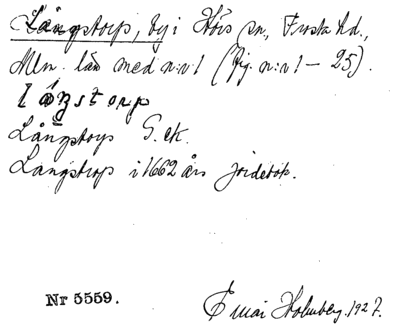 Långstorp, by i Hörs sn, Frosta hd.,
Mlm. län med n:r 1 (fig. n:r 1 – 25).
långstorp
Långstorps G. ek.
Langstrop i 1662 års jordebok.
Nr 5559.
Holmberg. 1927.